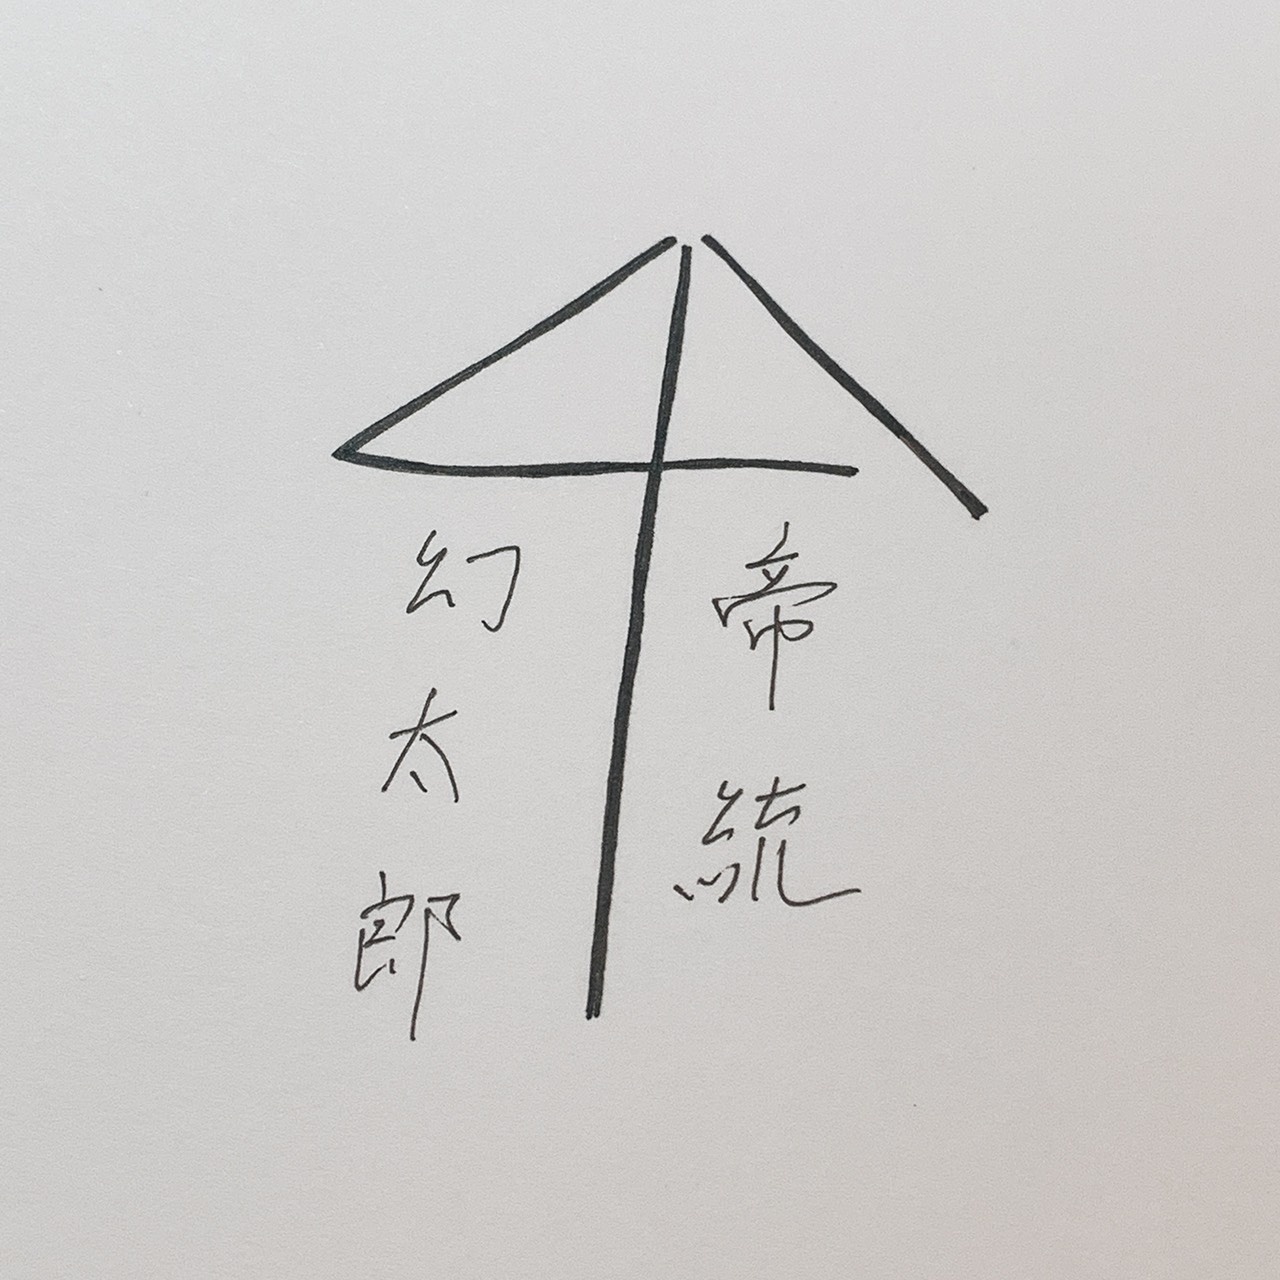 帝統
幻太郎